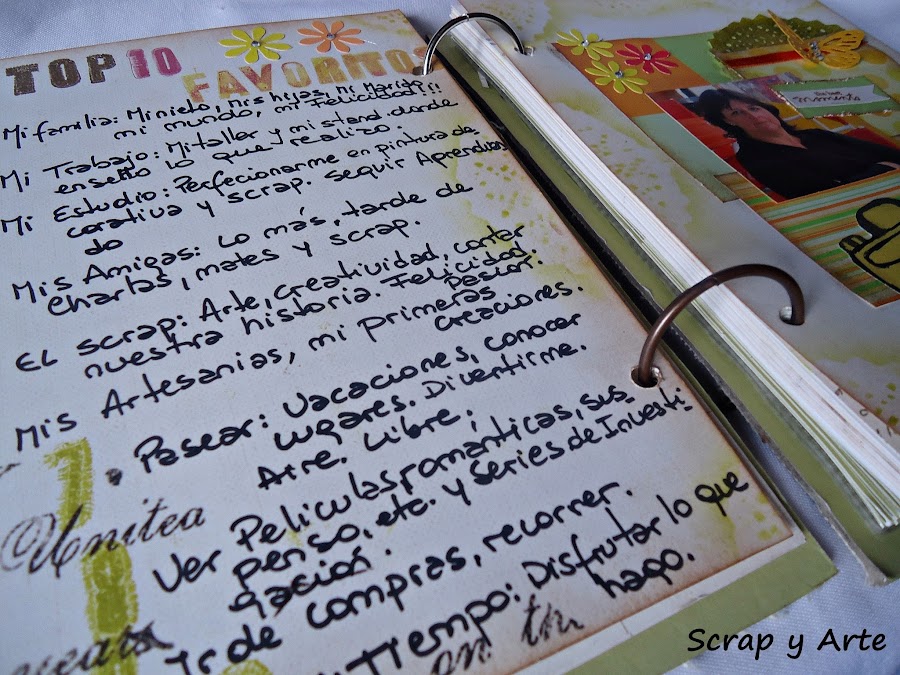 TOP 10
FAVORITOS
Mi familia: Mi nieto, mis hijas, mi Marido
mi mundo, mi Felicidad!!!
Mi Trabajo: Mi taller y mi stand. donde
enseño lo que realizo.
Mi Estudio: Perfecionarme en pintura de
corativa y scrap. seguir Aprendien
do
Mis Amigas: Lo más, tarde de
charlas, mates y scrap.
El scrap: Arte, creatividad, contar
nuestra historia. Felicidad
Mis Artesanias, mi primeras
creaciones.
Pasear: Vacaciones, conocer
lugares. Divertirme.
Aire. Libre.
Ver Peliculas romanticas, sus
penso, etc. y series de Investi
gación.
Ir de compras, recorrer.
Tiempo: Disfrutar lo que
hago.
United
years
on th
moments
Scrap y Arte